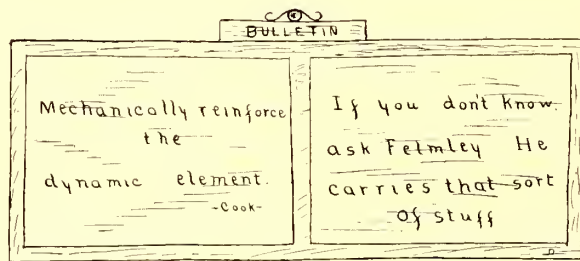 BULLETIN
Mechanically reinforce
the
dynamic element.
-Cook-
If you don't know.
ask Felmley He
carries that sort
Of stuff